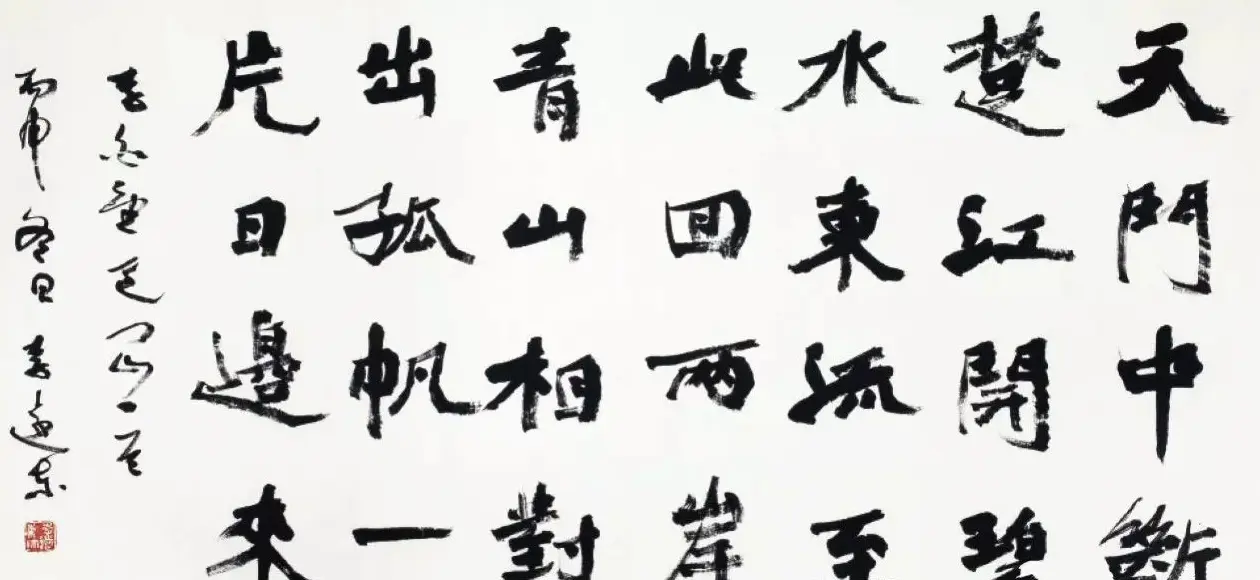 天門中斷
楚江開碧
水東流至
此回兩岸
青山相對
出孤帆一
片日邊來
李白望天门山一首
丙申冬日李遠东